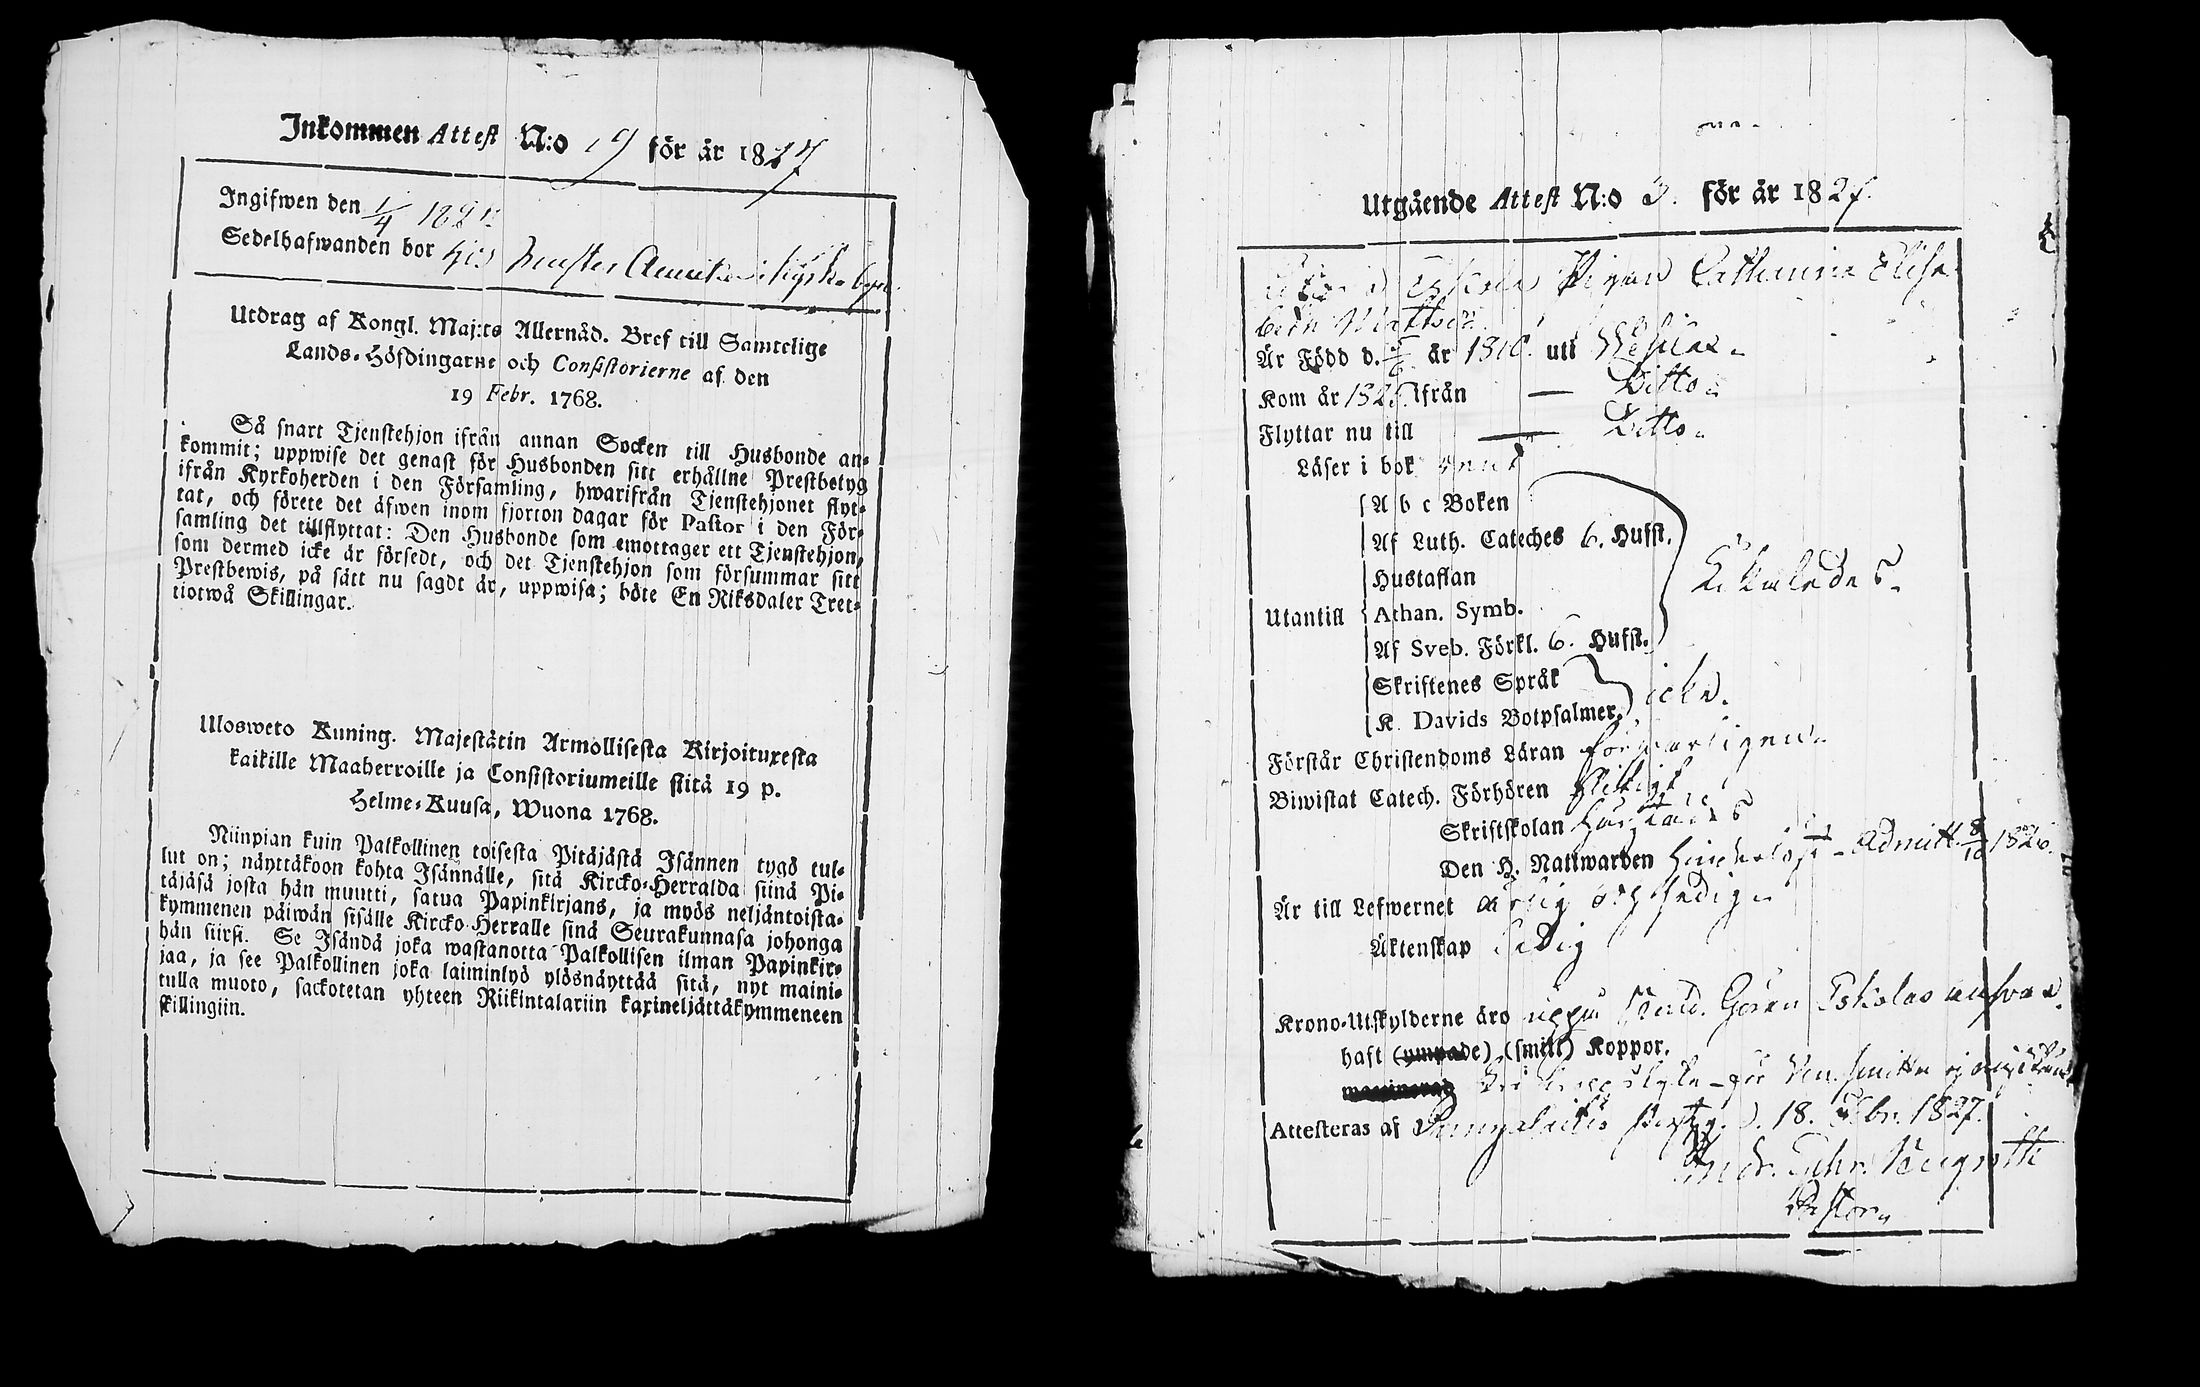 Inkommen Attest N:o 19 för år 1827
Ingifwen den 1/4 1827
Sedelhafwanden bor hos
Utdrag af Kongl. Maj:ts Allernåd. Bref till Samtelige
Lands-Höfdingarne och Consistorierne af den
19 Febr. 1768.
Så snart Tjenstehjon ifrån annan Socken till Husbonde an-
kommit; uppwise det genast för Husbonden sitt erhållne Prestbetyg
ifrån Kyrkoherden i den Församling, hwarifrån Tjenstehjonet flyt-
tat, och förete det äfwen inom fjorton dagar för Pastor i den För-
samling det tillflyttat: Den Husbonde som emottager ett Tjenstehjon,
som dermed icke är försedt, och det Tjenstehjon som försummar sitt
Prestbewis, på sätt nu sagdt är, uppwisa; böte En Riksdaler Tret-
tiotwå Skillingar.
Ulosweto Kuning. Majestätin Armollisesta Kirjoituxesta
kaikille Maaherroille ja Consistoriumeille siitä 19 p.
Helme-Kuusa, Wuona 1768.
Niinpian kuin Palkollinen toisesta Pitäjästä Isännen tygö tul-
lut on; näyttäkoon kohta Isännälle, sitä Kircko-Herralda siinä Pi-
täjäsä josta hän muutti, satua Papinkirjans, ja myös neljäntoista-
kymmenen päiwän sisälle Kircko-Herralle sinä Seurakunnasa johonga
hän siirsi. Se Isändä joka wastanotta Palkollisen ilman Papinkir-
jaa, ja see Palkollinen joka laiminlyö ylösnäyttää sitä, nyt maini-
tulla muoto, sackotetan yhteen Riikintalariin kaxineljättäkymmeneen
skillingiin.
Utgående Attest N:o 3. för år 1827.
Pigan Catharina Elisa-
beth
Är Född d. år 1810. uti
Kom år 182 ifrån — Ditto
Flyttar nu till — Ditto
Läser i bok
A b c Boken
Af Luth. Cateches 6. Hufst.
Hustaflan
Utantill Athan. Symb.
Af Sveb. Förkl. 6. Hufst.
Skriftenes Språk
K. Davids Botpsalmer. icke.
Förstår Christendoms Läran försvarligen
Biwistat Catech. Förhören flitigt
Skriftskolan
Den H. Nattwarden Admitt. 8/10 1826.
Är till Lefwernet ärlig och sedig
Äktenskap Ledig
Krono-Utskylderne äro uppå Göran
haft (ympade) (smitt) Koppor.
Attesteras af d. 18. 1827.
Pastor